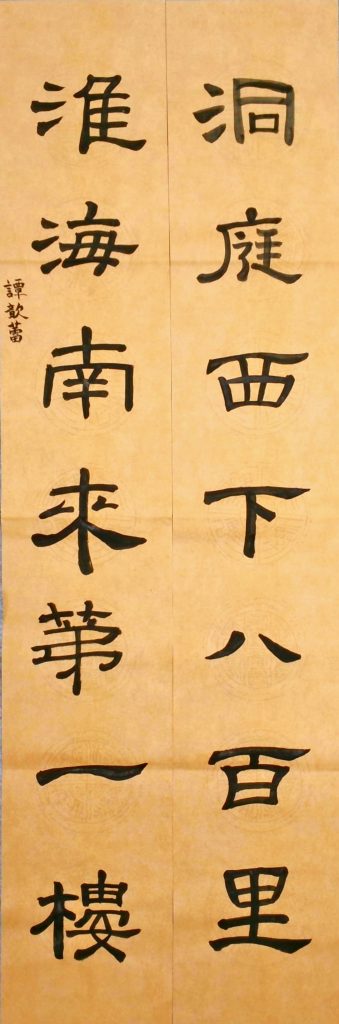 洞庭西下八百里
淮海南來苐一樓
譚歆蕾